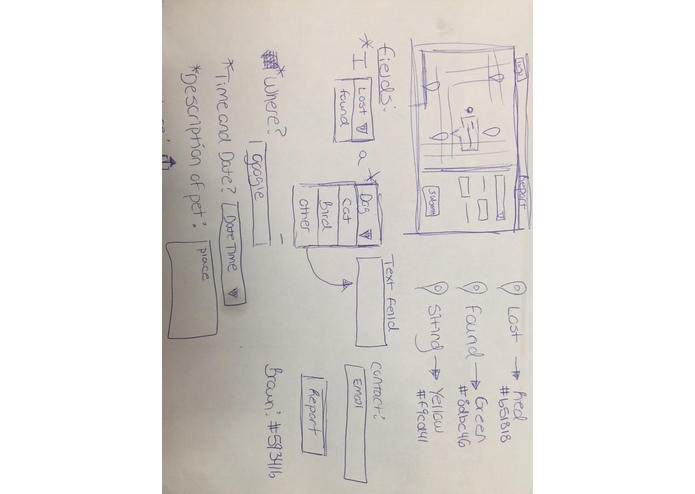 Report
Submit
Lost → Red
#b51818
Found → Green
#8dbc46
Siting → Yellow
#f9cd41
Fields:
* I
Lost
Found
a *
Dog
Cat
Bird
Other
Text Feild
Contact:
Email
Report
Brown: #593416
* Where?
google
place
* Time and Date?
Date Time
* Description of pet: